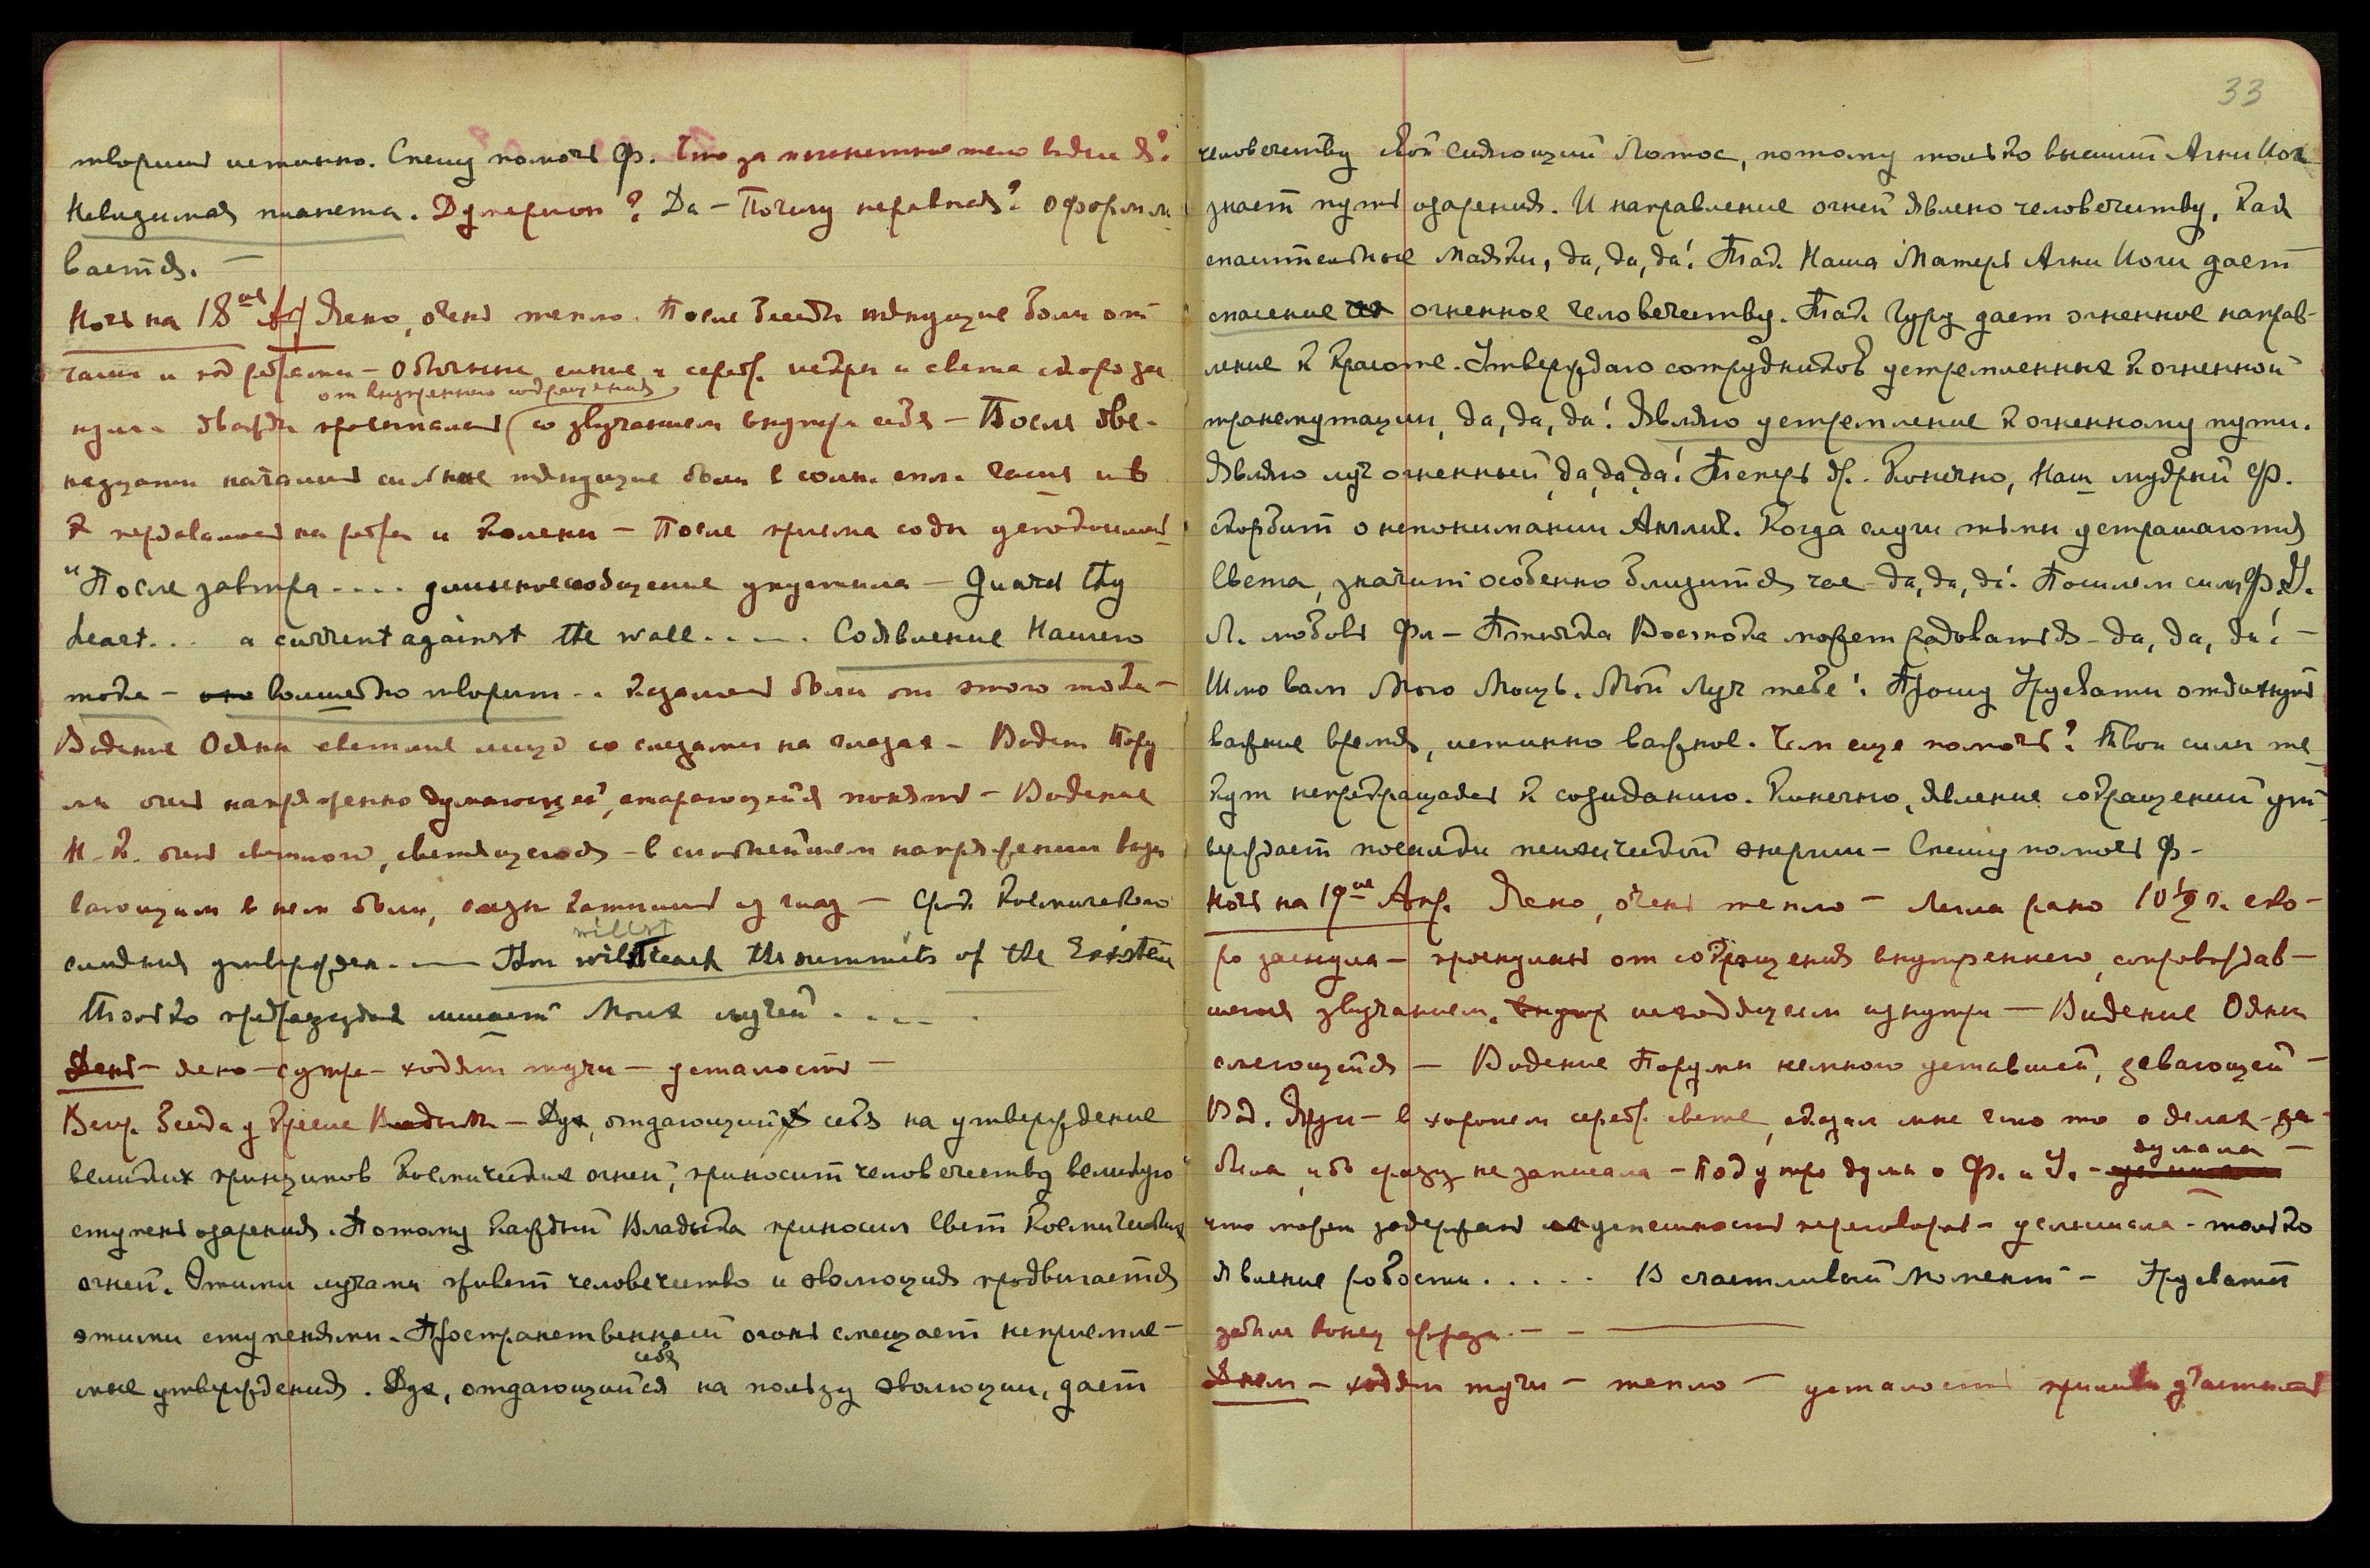 творит истинно. Спешу помочь Ф. Что за планетное тело видела я?
Невидимая планета. Думерион? Да – Почему неровная? Оформли-
вается. –
Ночь на 18ое Ап Ясно, очень тепло. После беседы тянущие боли от
чаши и под ребрами – Обычные синие и серебр. искры и света скоро за
от внутреннего содрогания
нула. дважды просыпалась (со звучанием внутри себя – После две-
надцати начались сильные тянущие боли в солн. спл. чаше и в
К передавались на ребра и колени – После приема соды успокоились
"После завтра .... длинное сообщение упустила – Guard thy
heart... a current against the wall..... Соявление Нашего
тока – оно волшебно творит.. Казались боли от этого тока –
Видение Ояны светлое лицо со слезами на глазах – Видение Пору
мы очень напряженно думающей, старающейся понять – Видение
Н.К. очень светлого, светящегося – в сильнейшем напряжении вызы
вающим в нем боли, слезы катились из глаз – Срок Космического
willst
слияния утвержден. — Thou wilst reach the summits of the Existen
Только предрассудок лишает Моих лучей ....
День – ясно – с утра – ходят тучи – усталость –
Веч. Беседа у Кресле Владыки – Дух, отдающий себя на утверждение
великих принципов Космических огней, приносит человечеству великую
ступень озарения. Потому каждый Владыка приносил Свет Космических
огней. Этими лучами живет человечество и эволюция продвигается
этими ступенями. Пространственный огонь смещает неприемле-
себя
мые утверждения. Дух, отдающийся на пользу эволюции, дает
33
человечеству Свой сияющий Лотос, потому только высший Агни Йог
знает путь озарения. И направление огней явлено человечеству, как
спасительные маяки, да, да, да! Так Наша Матерь Агни Йоги дает
спасение огненное человечеству. Так Гуру дает огненное направ-
ление к Красоте. Утверждаю сотрудников устремленных к огненной
трансмутации, да, да, да! Являю устремление к огненному пути.
Являю луч огненный, да, да, да! Теперь др. Конечно, Наш мудрый Ф.
скорбит о непонимании Англич. Когда слуги тьмы устрашаются
Света, значит особенно близится час – да, да, да! Пошлем силы Ф. У.
Л. любовь Фл – Птичка Востока может радоваться – да, да, да! –
Шлю вам Мою Мощь. Мой Луч тебе! Прошу Урусвати отдохнуть
важное время, истинно важное. Чем еще помочь? Твои силы те
кут непрекращаясь к созиданию. Конечно, явление сокращений ут-
верждает посылки психической энергии – Спешу помочь Ф –
Ночь на 19ое Апр. Ясно, очень тепло – Легла рано 10½ ч. ско-
ро заснула – проснулась от сокращения внутреннего, сопровождав-
шегося звучанием, исходящим изнутри – Видение Ояны
смеющейся – Видение Порумы немного уставшей, зевающей –
Вид. Яруи – в хорошем серебр. свете, сказал мне что то о делах – за-
была, ибо сразу не записала – Под утро думы о Ф. и У. –
думала –
что может задержать успешность переговоров – услышала – только
явление робости ..... В счастливый момент – Урусвати
забыла конец фразы. – –
Днем – ходят тучи – тепло – усталость приливы участились